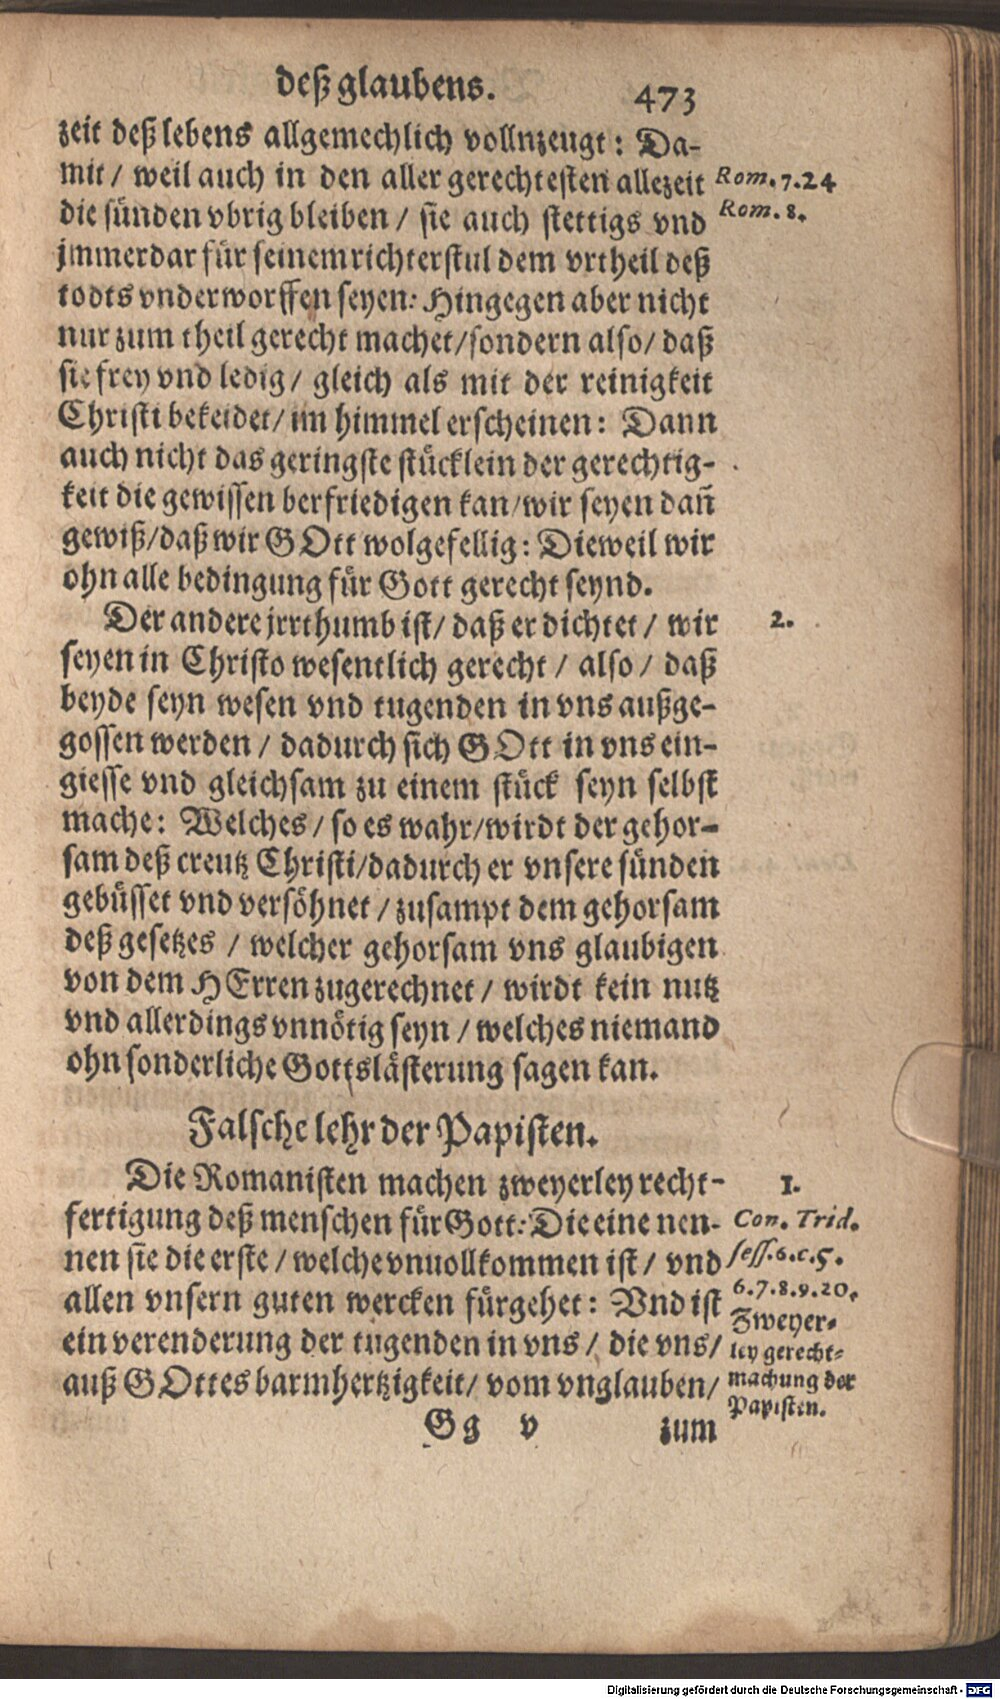 deß glaubens. 473
zeit deß lebens allgemechlich vollnzeugt: Da-
mit / weil auch in den aller gerechtesten allezeit
Rom. 7.24
die sünden vbrig bleiben / sie auch stettigs vnd
Rom. 8.
jmmerdar für seinem richterstul dem vrtheil deß
todts vnderworffen seyen: Hingegen aber nicht
nur zum theil gerecht machet/sondern also/ daß
sie frey vnd ledig/ gleich als mit der reinigkeit
Christi bekeidet/ im himmel erscheinen: Dann
auch nicht das geringste stücklein der gerechtig-
keit die gewissen berfriedigen kan/wir seyen dañ
gewiß/daß wir GOtt wolgefellig: Dieweil wir
ohn alle bedingung für Gott gerecht seynd.
Der andere jrrthumb ist/ daß er dichtet / wir
2.
seyen in Christo wesentlich gerecht / also / daß
beyde seyn wesen vnd tugenden in vns außge-
gossen werden / dadurch sich GOtt in vns ein-
giesse vnd gleichsam zu einem stück seyn selbst
mache: Welches / so es wahr/wirdt der gehor-
sam deß creutz Christi/dadurch er vnsere sünden
gebüsset vnd versöhnet / zusampt dem gehorsam
deß gesetzes / welcher gehorsam vns glaubigen
von dem HErren zugerechnet / wirdt kein nutz
vnd allerdings vnnötig seyn / welches niemand
ohn sonderliche Gottslästerung sagen kan.
Falsche lehr der Papisten.
Die Romanisten machen zweyerley recht-
1.
fertigung deß menschen für Gott: Die eine nen-
Con. Trid.
nen sie die erste / welche vnuollkommen ist / vnd
sess. 6. c. 5.
allen vnsern guten wercken fürgehet: Vnd ist
6.7.8.9.20.
ein verenderung der tugenden in vns / die vns/
Zweyer-
ley gerecht-
auß GOttes barmhertzigkeit/ vom vnglauben/
machung der
Papisten.
Gg v zum
Digitalisierung gefördert durch die Deutsche Forschungsgemeinschaft - DFG